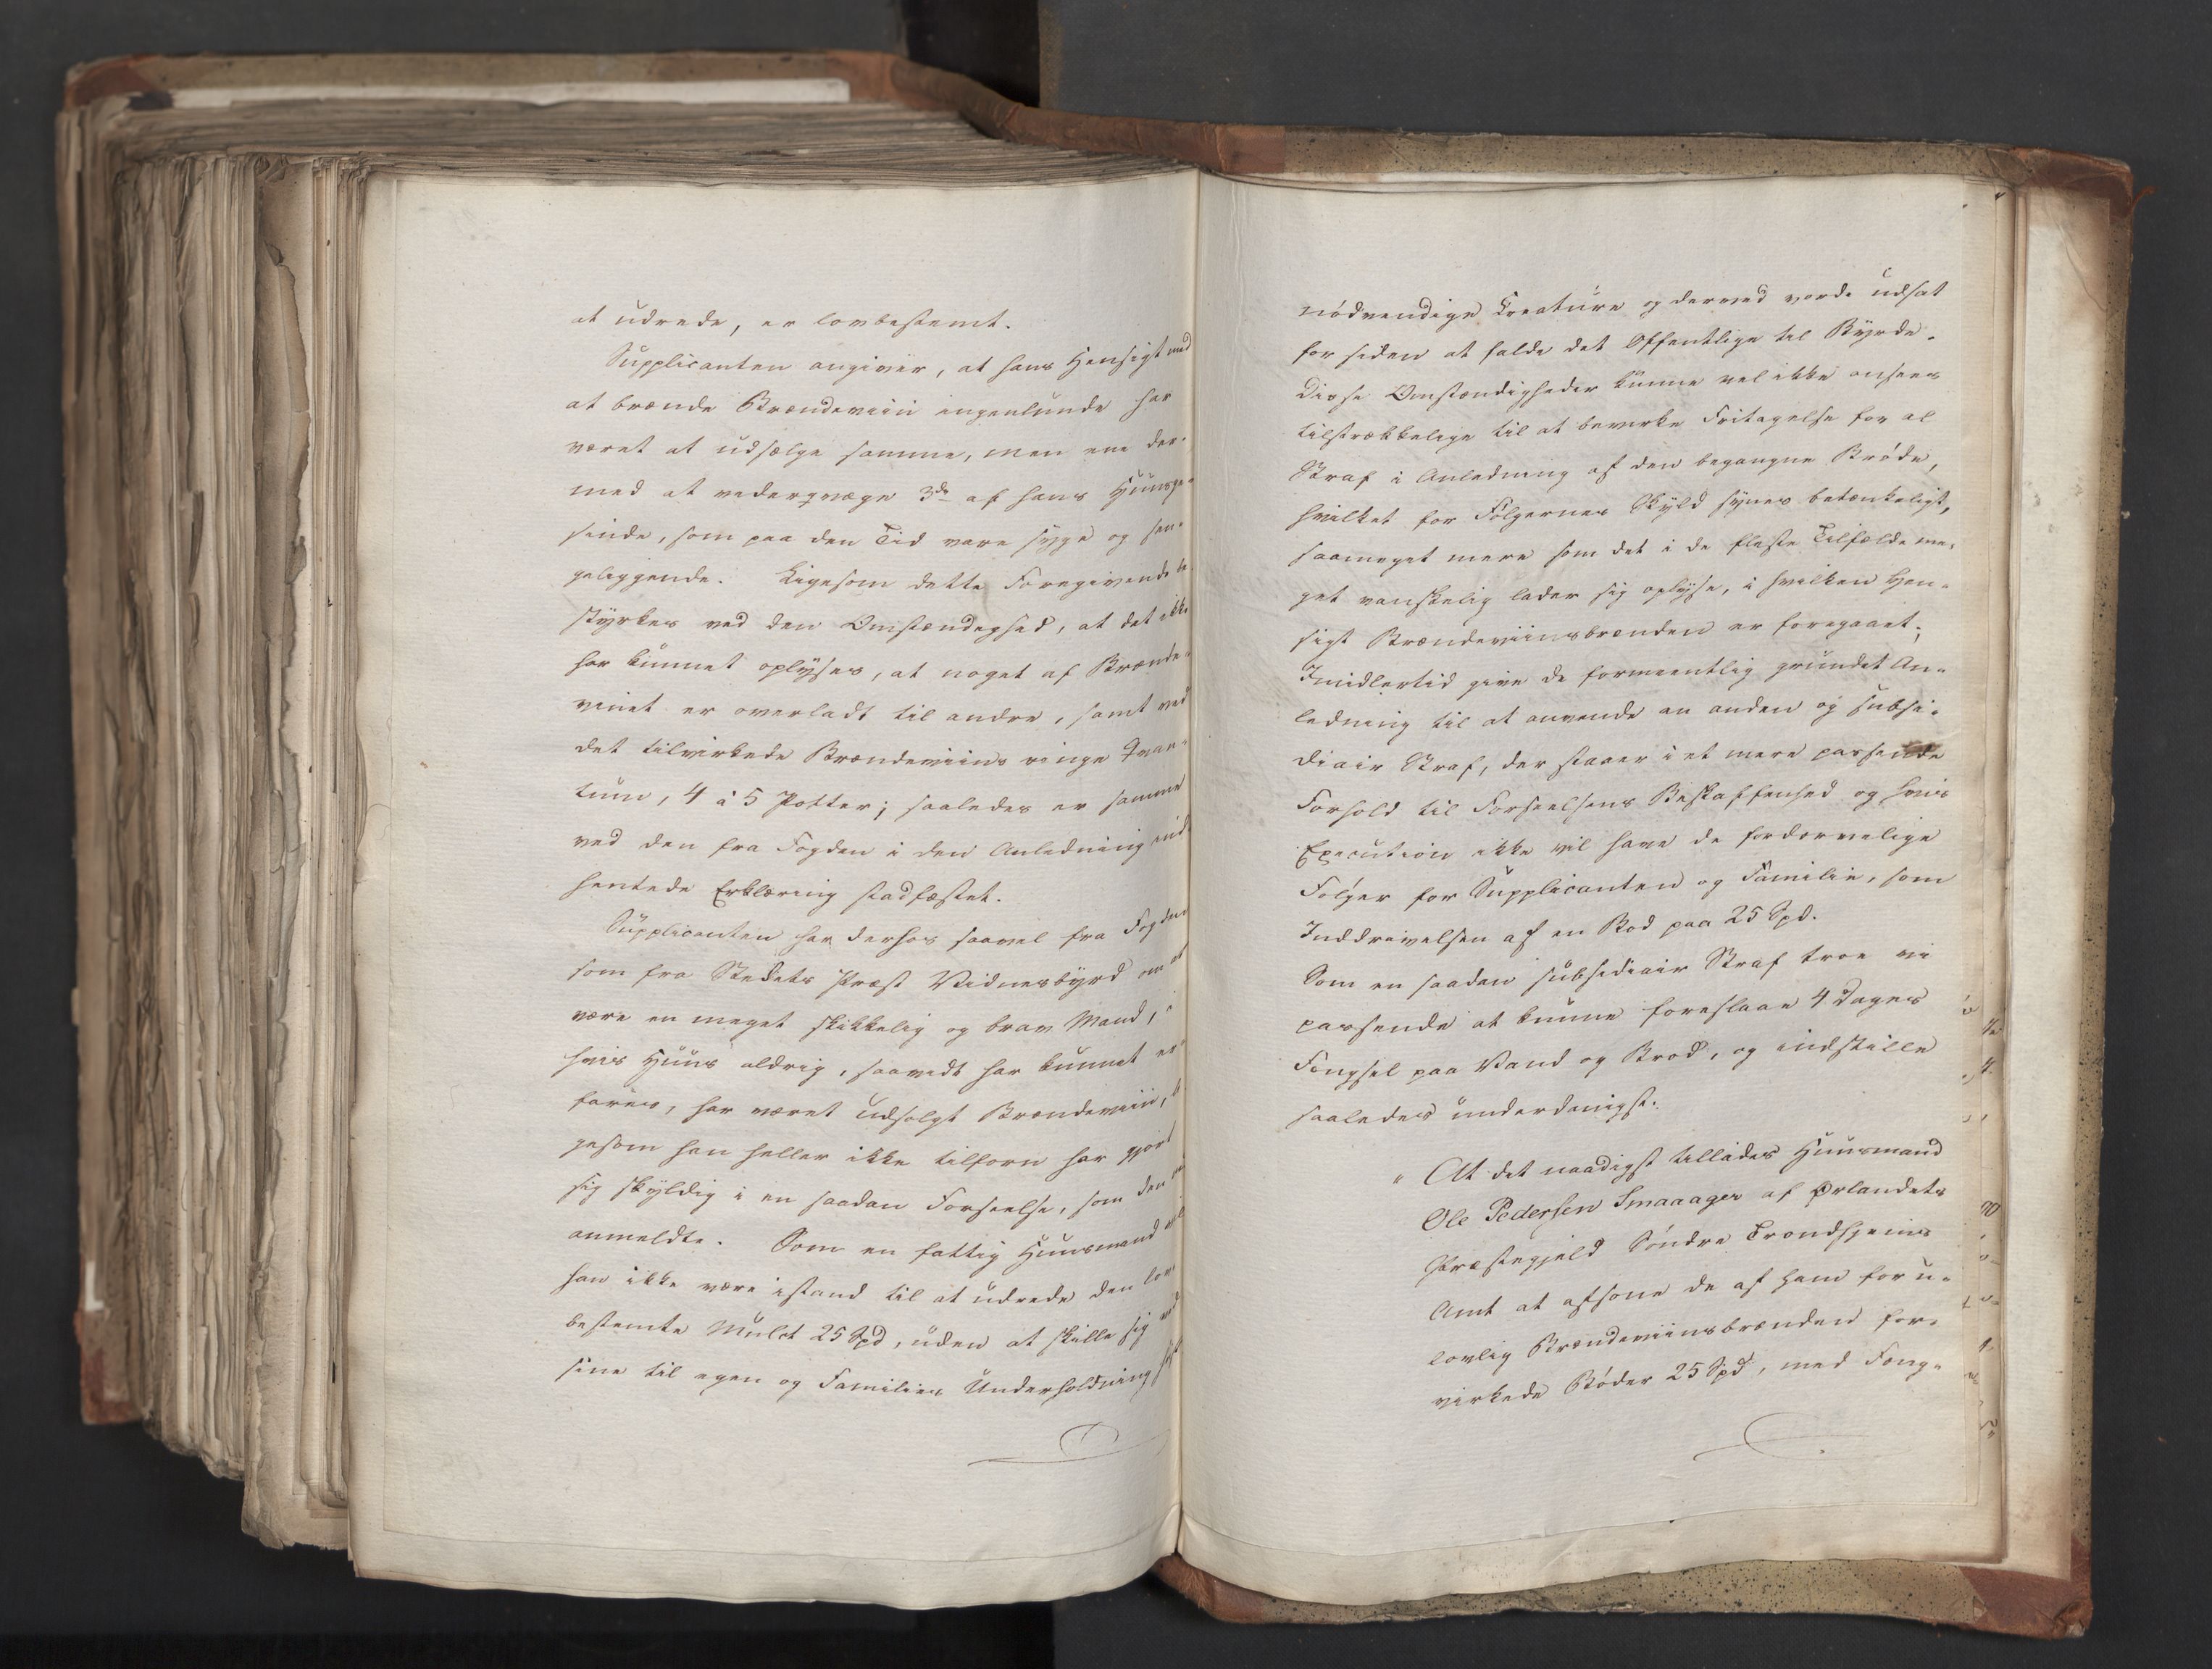 at udrede, er lovbestemt.
Supplicanten angiver, at hans Hensigt med
at brænde Brændeviin ingenlunde har
været at udsælge samme, men ene der-
med at vederqvæge 3de af hans Huusge-
sinde, som paa den Tid vare syge og sen-
geliggende. Ligesom dette Foregivende be-
styrkes ved den Omstændighed, at det ikke
har kunnet oplyses, at noget af Brænde-
vinet er overladt til andre, samt ved
det tilvirkede Brændeviins ringe Qvan-
tum, 4 à 5 Potter; saaledes er samme
ved den fra Fogden i den Anledning ind-
hentede Erklæring stadfæstet.
Supplicanten har derhos saavel fra Fogden
som fra Stedets Præst Vidnesbyrd om at
være en meget skikkelig og brav Mand, i
hvis Huus aldrig, saavidt har kunnet er-
fares, har været udsolgt Brændeviin, li-
gesom han heller ikke tilforn har gjort
sig skyldig i en saadan Forseelse, som den
anmeldte. Som en fattig Huusmand skal
han ikke være istand til at udrede den lov-
bestemte Mulct 25 Spd, uden at skille sig ved
sine til egen og Families Underholdning høist
nødvendige Creature og derved vorde udsat
for siden at falde det Offentlige til Byrde.
Disse Omstændigheder kunne vel ikke ansees
tilstrækkelige til at bevirke Fritagelse for al
Straf i Anledning af den begangne Brøde,
hvilket for Følgernes Skyld synes betænkeligt,
saameget mere som det i de fleste Tilfælde me-
get vanskelig lader sig oplyse, i hvilken Hen-
sigt Brændeviinsbrænden er foregaaet;
Imidlertid give de formeentlig grundet An-
ledning til at anvende en anden og subsi-
diair Straf, der staaer i et mere passende
Forhold til Forseelsens Beskaffenhed og hvis
Execution ikke vil have de fordærvelige
Følger for Supplicanten og Familie, som
Inddrivelsen af en Bod paa 25 Spd.
Som en saadan subsidiair Straf troe vi
passende at kunne foreslaae 4 Dages
Fængsel paa Vand og Brød, og indstille
saaledes underdanigst:
" At det naadigst tillades Huusmand
Ole Pedersen Smaaager af Ørlandets
Præstegjeld Søndre Trondhjems
Amt at afsone de af ham for u-
lovlig Brændeviinsbrænden for-
virkede Bøder 25 Spd, med Fæng-